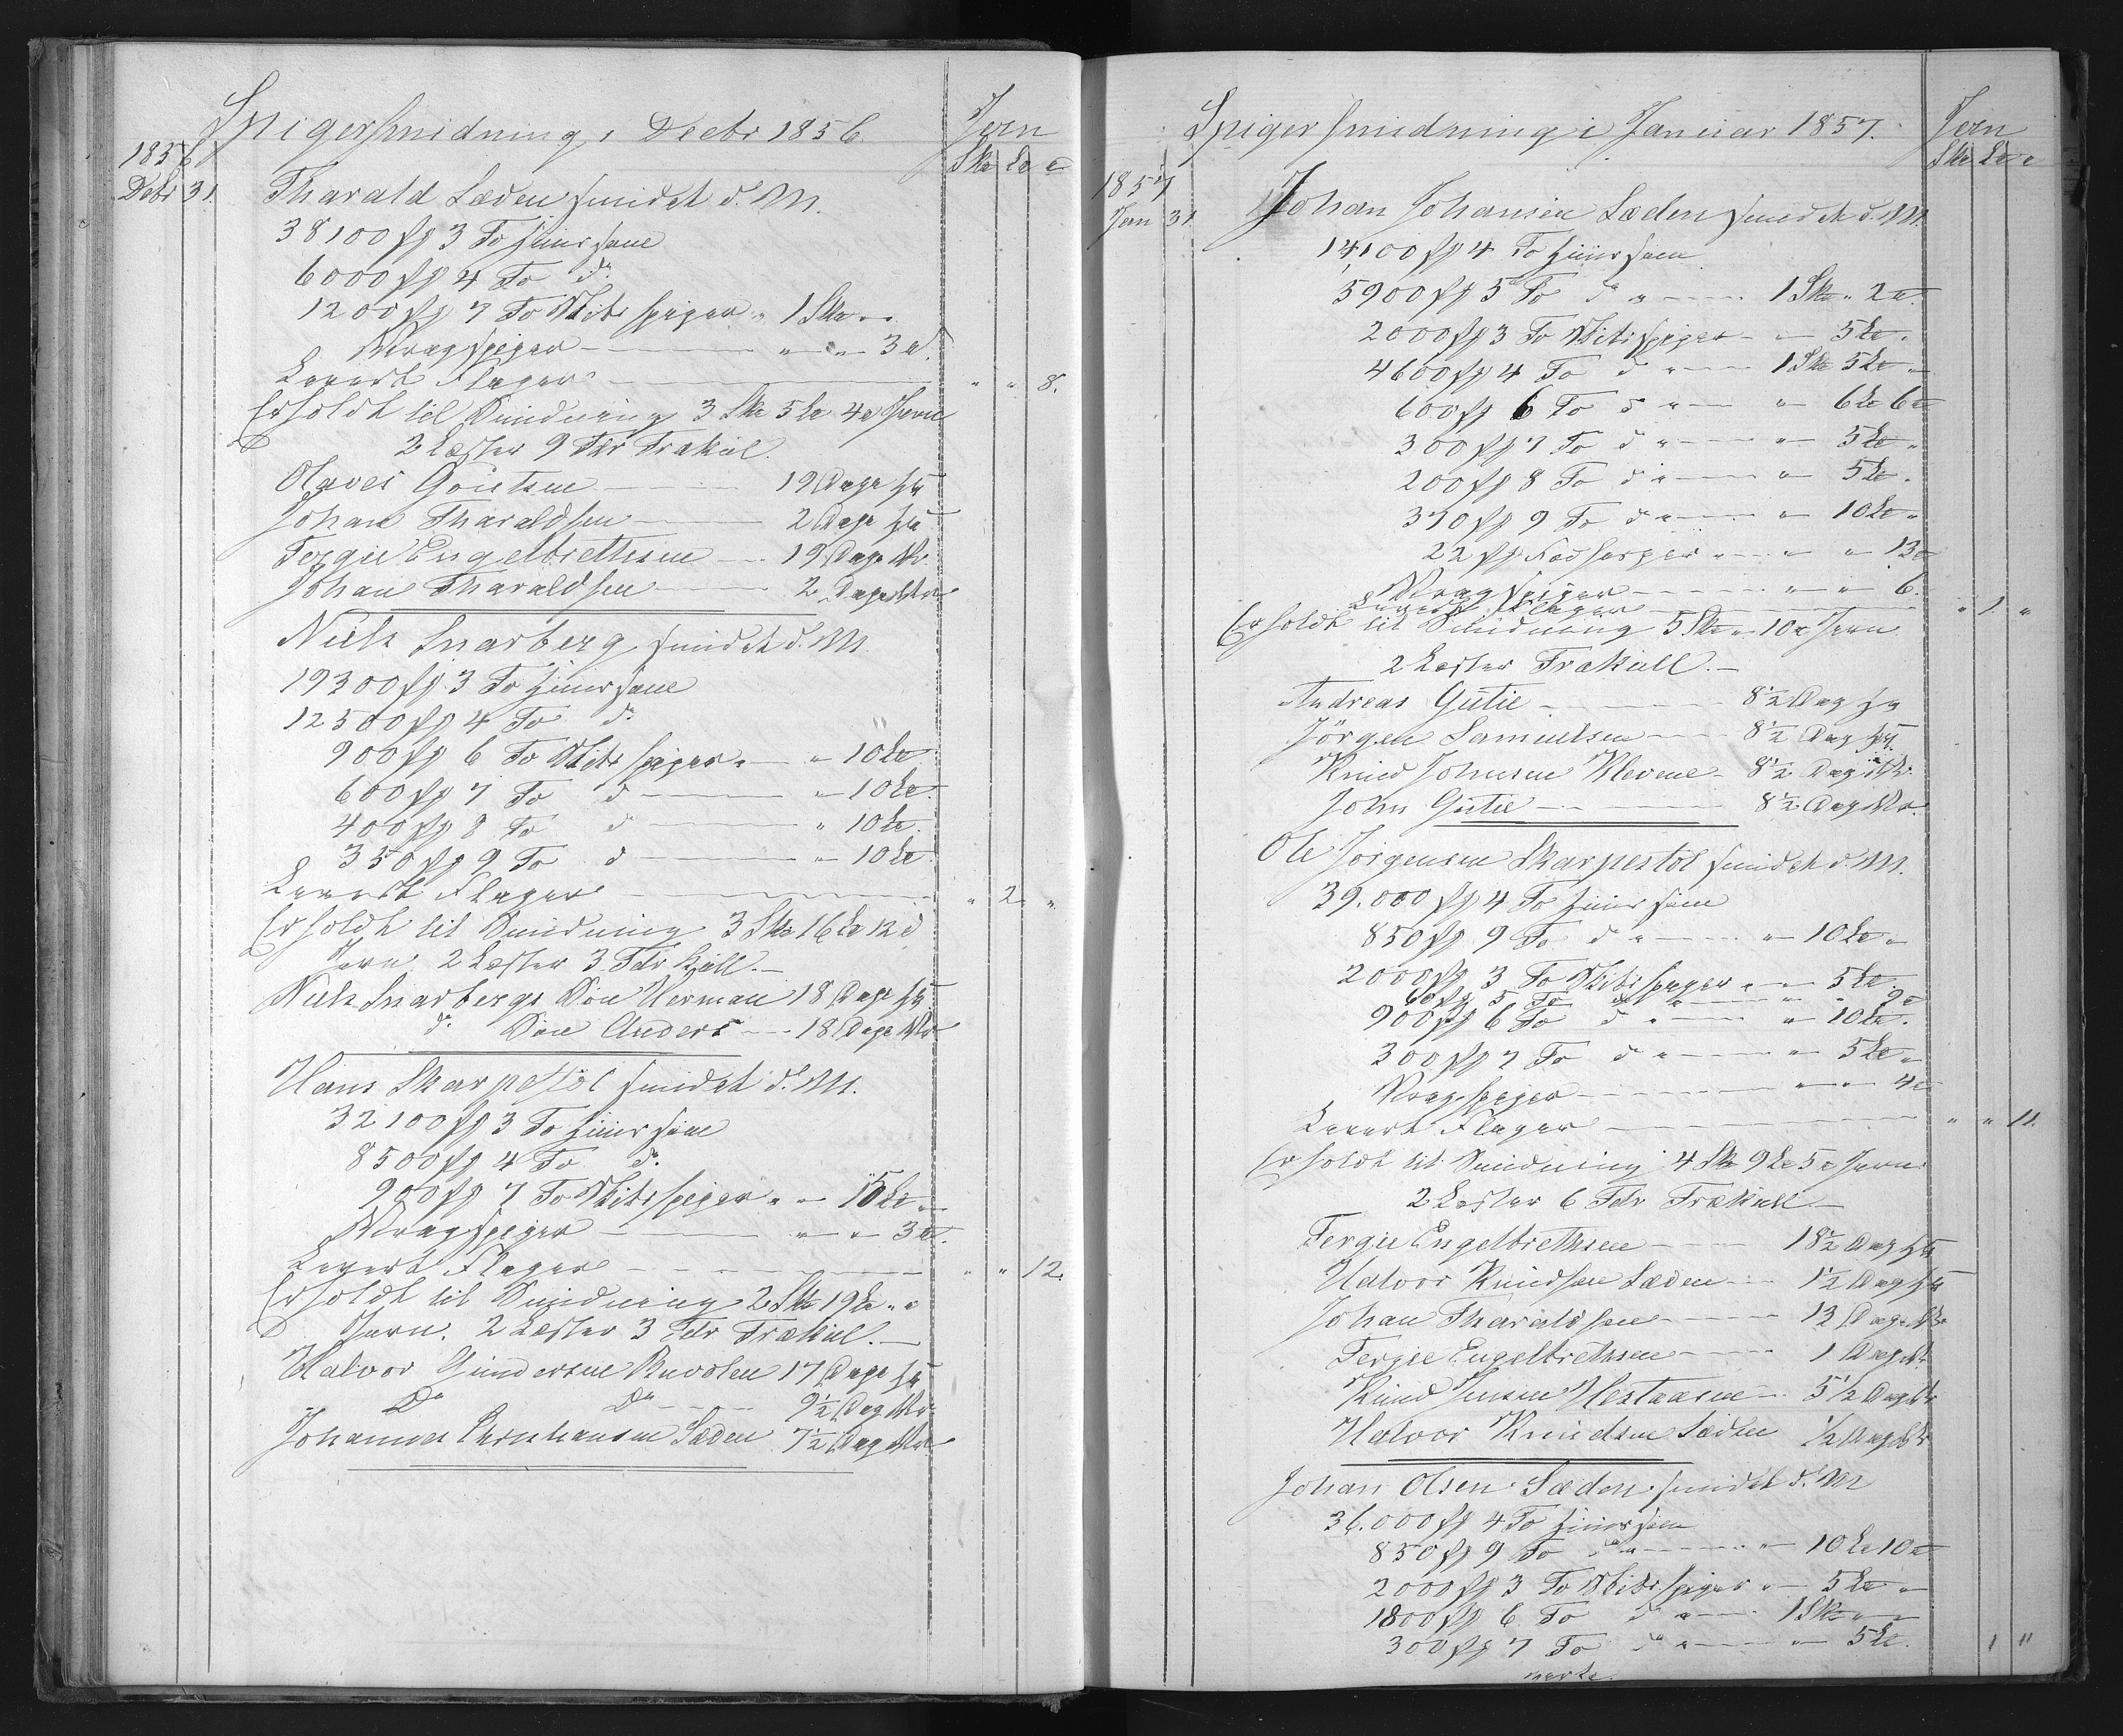 Spigersmidning i Decbr 1856. Jern
1856 Sk℔ L℔ ℔
Debr 31. Tharald Læden smidet d. M.
38100 st 3 To huussøm
6000 st 4 To do
1200 st 7 To Skibsspiger " 1 Sk℔ " "
Vragspiger " " 3 ℔.
Levert Flager " " 8.
Erholdt til Smidning 3 Sk℔ 5 L℔ 4 ℔ Jern
2 Læster 9 Tdr Trækul.
Olaves Goutsen 19 Dage
Johan Tharaldsen 2 Dage
Tergie Engelbrethsen 19 Dage
Johan Tharaldsen 2 Dage
Niels Snarberg smidet d. M.
19300 st 3 To huussøm
12500 st 4 To do
900 st 6 To Skibsspiger " " 10 L℔
600 st 7 To do " 10 L℔
400 st 8 To do " 10 L℔
350 st 9 To do " 10 L℔
Levert Flager " 2 "
Erholdt til Smidning 3 Sk℔ 16 L℔ 12 ℔
Jern 2 Læster 3 Tdr Kull.
Niels Snarbergs Søn Herman 18 Dage
do Søn Anders 18 Dage
Hans Skarpestøl smidet d. M.
32100 st 3 To huussøm
8500 st 4 To do
900 st 7 To Skibsspiger " " 15 L℔ "
Vragspiger " " 3 ℔.
Levert Flager " " 12.
Erholdt til Smidning 2 Sk℔ 19 L℔ " ℔
Jern. 2 Læster 3 Tdr Trækul.
Halvor Gundersen 17 Dage
Do Do 9½ Dag
Johannes Christiansen Læden 7½ Dag
Spigersmidning i Januar 1857. Jern
1857 Sk℔ L℔ ℔
Jan 31 Johan Johansen Læden smidet d. M.
14,100 st 4 To huussøm
5900 st 5 To do " 1 Sk℔ " 2 ℔.
2000 st 3 To Skibsspiger " 5 L℔ "
4600 st 4 To do " 1 Sk℔ 5 L℔ "
600 st 6 To do " " 6 L℔ 6 ℔
300 st 7 To do " " 5 L℔ "
200 st 8 To do " " 5 L℔ "
370 st 9 To do " " 10 L℔ "
22 st " " " 13 ℔
Vragspiger " " 6 "
Levert Flager " 1 "
Erholdt til Smidning 5 Sk℔ " 10 ℔ Jern
2 Læster Trækull.
Andreas Gutie 8½ Dag
Jörgen Samuelsen 8½ Dag
Knud Johnsen Klevene 8½ Dag
John Gutie 8½ Dag
Ole Jørgensen Skarpestøl smidet d. M.
39.000 st 4 To huussøm
850 st 9 To do " " 10 L℔ "
2000 st 3 To Skibsspiger " " 5 L℔ "
60 st 5 To do " " 9 ℔
900 st 6 To do " " 10 L℔ "
300 st 7 To do " " 5 L℔ "
Vragspiger " " 4 ℔
Levert Flager " " 11.
Erholdt til Smidning 4 Sk℔ 9 L℔ 5 ℔ Jern
2 Læster 6 Tdr Trækull
Tergie Engelbrethsen 18½ Dag
Halvor Knudsen Læden 1½ Dag
Johan Tharaldsen 13 Dage
Tergie Engelbrethsen 1 Dag
Knud Jensen Hestaasen 5½ Dag
Halvor Knudsen Læden ½ Dag
Johan Olsen Læden smidet d. M
36.000 st 4 To huussøm
850 st 9 To do " 10 L℔ 10 ℔
2000 st 3 To Skibsspiger " " 5 L℔ "
1800 st 6 To do " 1 Sk℔ " "
300 st 7 To do " " 5 L℔ 1 "